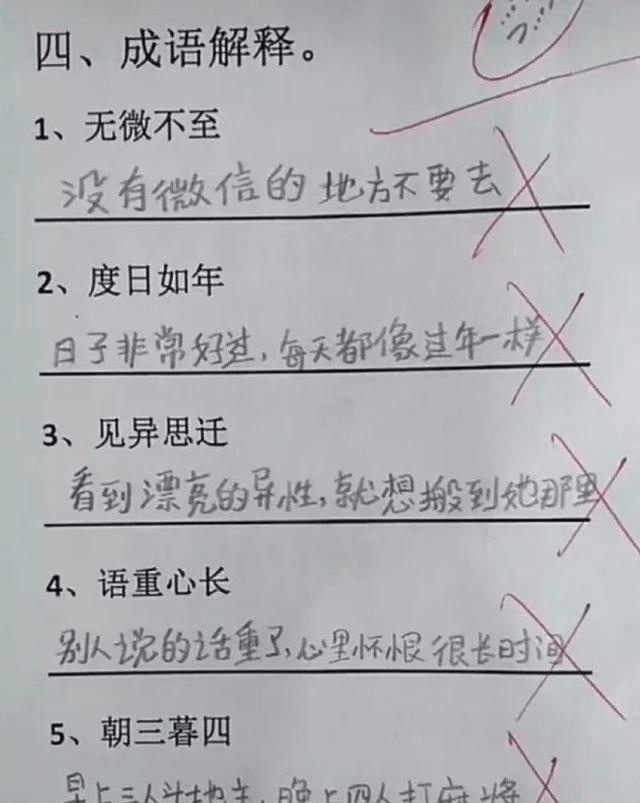 四、成语解释。
1、无微不至
没有微信的地方不要去
2、度日如年
日子非常好过，每天都像过年一样
3、见异思迁
看到漂亮的异性，就想搬到她那里
4、语重心长
别人说的话重了，心里怀恨很长时间
5、朝三暮四
早上三人斗地主，晚上四人打麻将